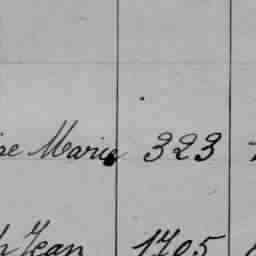 Marie 323
Jean 1705